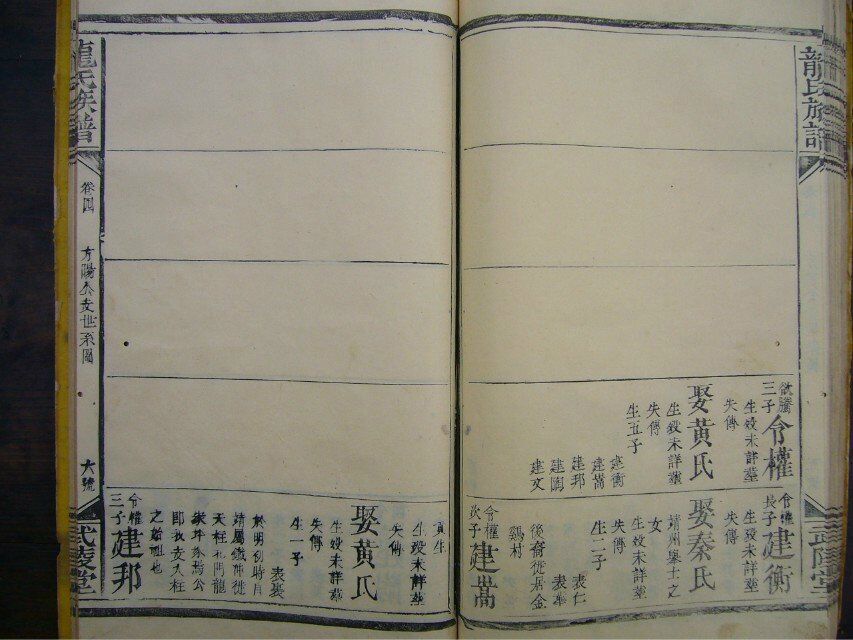 龍氏族譜
武陵堂
欽騰三子
令權
生歿未詳塟
失傳
娶黄氏
生歿未詳塟
失傳
生五子
建衡
建嵩
建邦
建閣
建文
令權長子
建衡
生歿未詳塟
失傳
娶秦氏
靖州擧士之
女
生歿未詳塟
失傳
生二子
表仁
表奉
後裔徙居金
鷄村
令權次子
建嵩
貢生
生歿未詳塟
失傳
娶黄氏
生歿未詳塟
失傳
生一子
表裴
於明初時自
靖屬鐵冲徙
天柱北門龍
家坪
公
即我支天柱
之始祖也
令權三子
建邦
龍氏族譜
卷四
方陽公支世系圖
六號
武陵堂